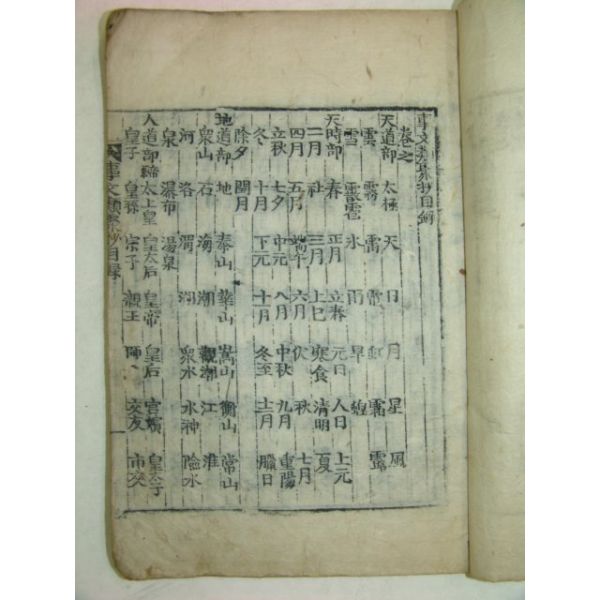 事文類聚抄目錄
卷之
天道部 太極 天 日 月 星 風
雲 霧 雷 電 虹 霜 露
雪 雹 氷 雨 旱
天時部 春 正月 立春 元日 人日 上元
二月 社 三月 上巳 寒食 清明 夏
四月 五月 端午 六月 伏 秋 七月
立秋 七夕 中元 八月 中秋 九月 重陽
冬 十月 下元 十一月 冬至 十二月 臘日
除夕 閏月
地道部 地 泰山 華山 嵩山 衡山 常山
衆山 石 海 潮 觀潮 江 淮
河 洛 渭 湖 衆水 水神 險水
泉 瀑布 湯泉
人道部 太上皇 皇太后 皇帝 皇后 宮嬪 皇太子
皇子 皇孫 宗子 親王 師 交友 市交
事文類聚抄目録